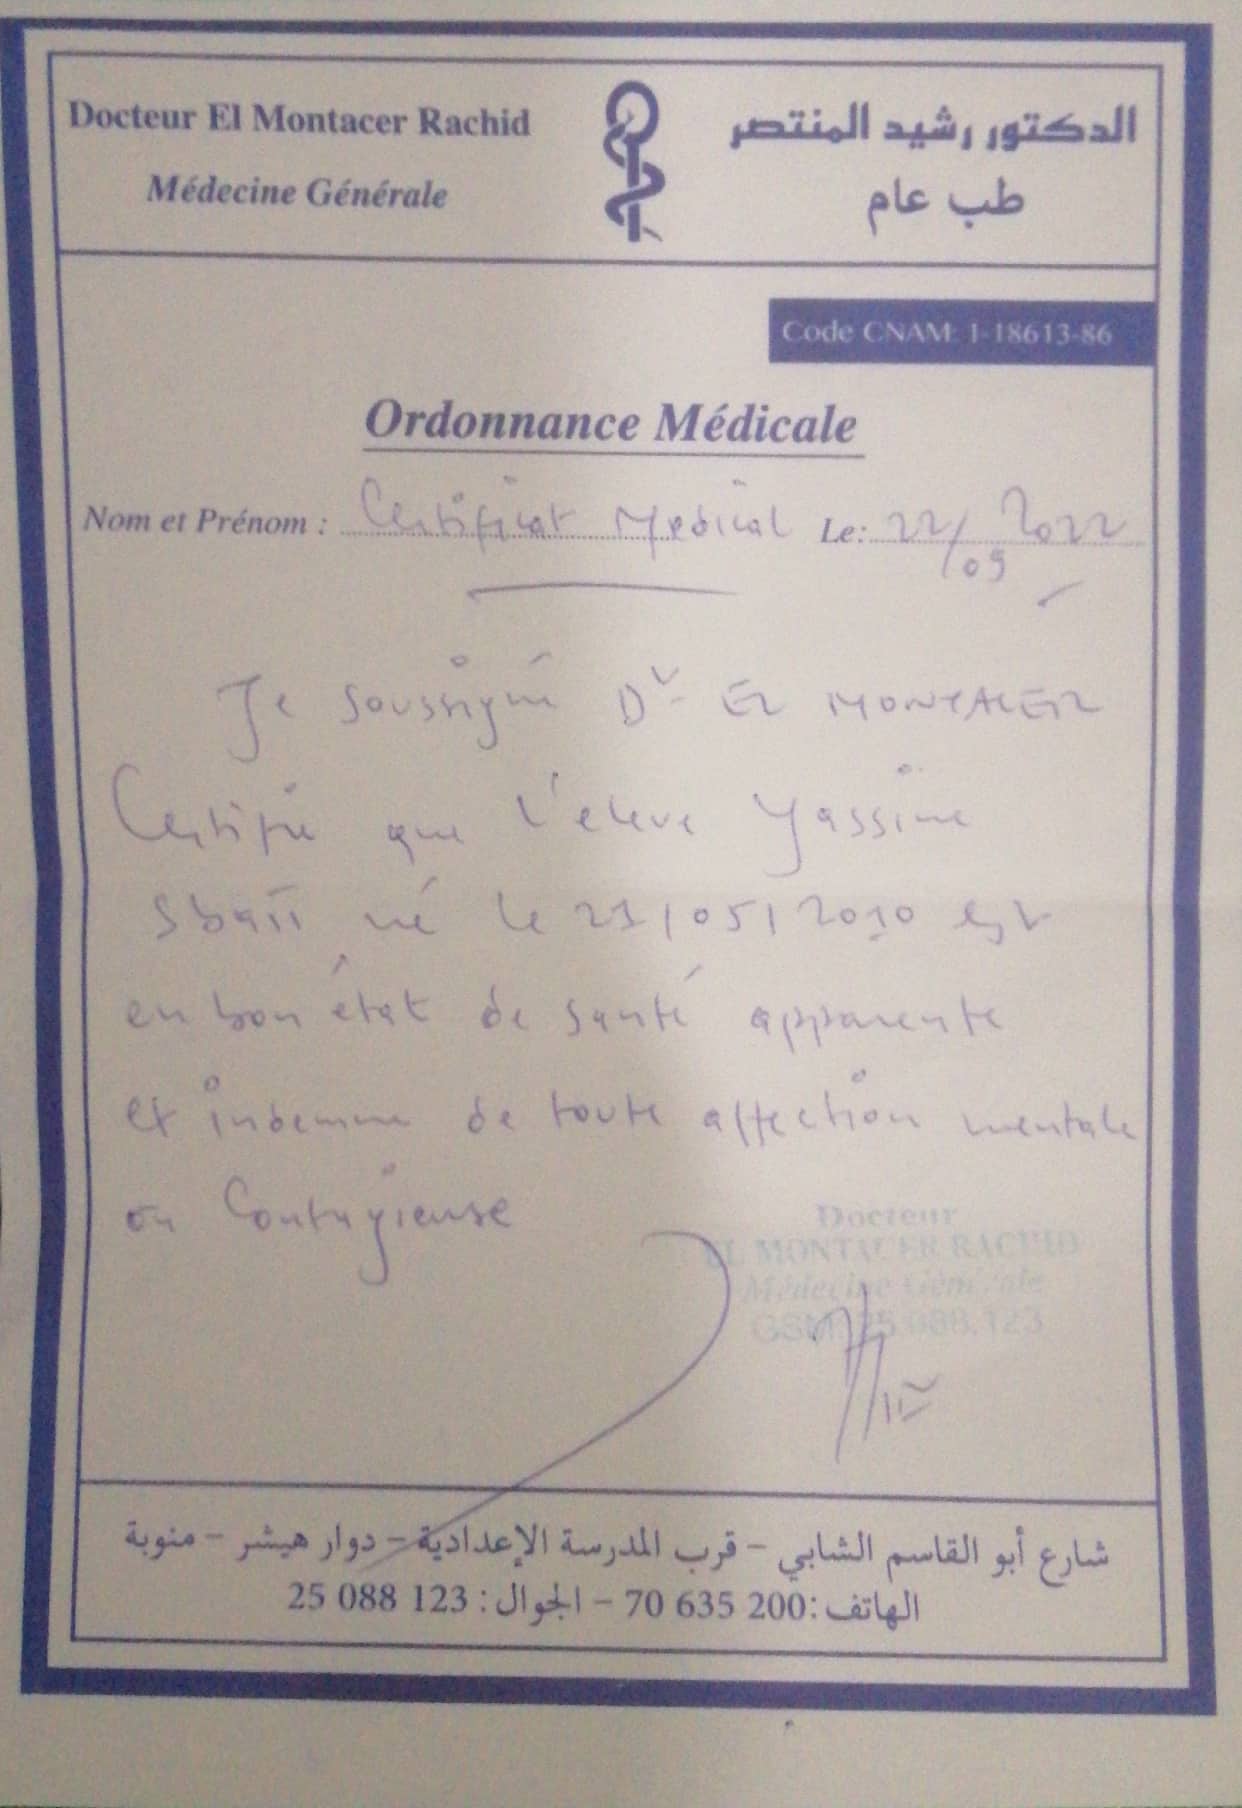 Docteur El Montacer Rachid
Médecine Générale
الدكتور رشيد المنتصر
طب عام
Code CNAM: 1-18613-86
Ordonnance Médicale
Nom et Prénom : Certificat Medical Le: 22/09 2022
Je soussigné Dr EL MONTACER
Certifie que l'eleve Yassine
Sbaii né le 21/05/2010 est
en bon état de santé apparente
et indemne de toute affection mentale
ou Contagieuse
Docteur
EL MONTACER RACHID
Médecine Générale
GSM: 25.088.123
شارع أبو القاسم الشابي - قرب المدرسة الإعدادية - دوار هيشر - منوبة
الهاتف: 70 635 200 - الجوال: 25 088 123